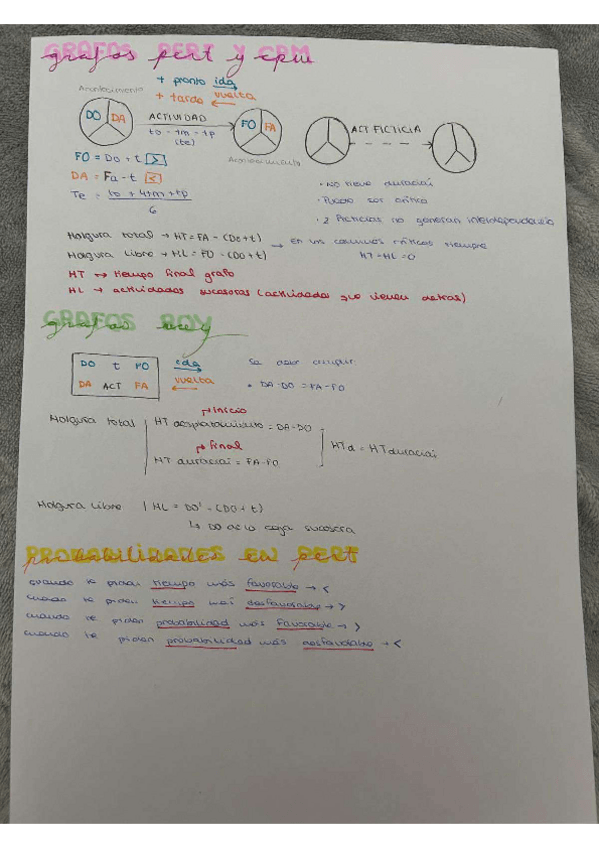 GRAFOS PERT Y CPM
grafos pert y cpm
+ pronto ida
+ tarde vuelta
Acontecimiento
DO DA
ACTIVIDAD
to - tm - tp
(te)
FO FA
Acontecimiento
ACT FICTICIA
FO = DO + t >
DA = Fa - t <
Te = to + 4tm + tp
6
· No tiene duración
· Puede ser crítica
· 2 Ficticias no generan interdependencia
Holgura total → HT = FA - (Do + t)
Holgura libre → HL = FO - (DO + t)
→ En los caminos críticos siempre
HT = HL = 0
HT → tiempo final grafo
HL → actividades sucesoras (actividades que vienen detrás)
GRAFOS ROY
grafos roy
DO t FO ida
DA ACT FA vuelta
Se debe cumplir
· DA - DO = FA - FO
→ inicio
Holgura total
HT desplazamiento = DA - DO
→ final
HT duración = FA - FO
HTd = HT duración
Holgura libre | HL = DO' - (DO + t)
↳ DO de la caja sucesora
PROBABILIDADES EN PERT
probabilidades en pert
cuando te piden tiempo más favorable → <
cuando te piden tiempo más desfavorable → >
cuando te piden probabilidad más favorable → >
cuando te piden probabilidad más desfavorable → <